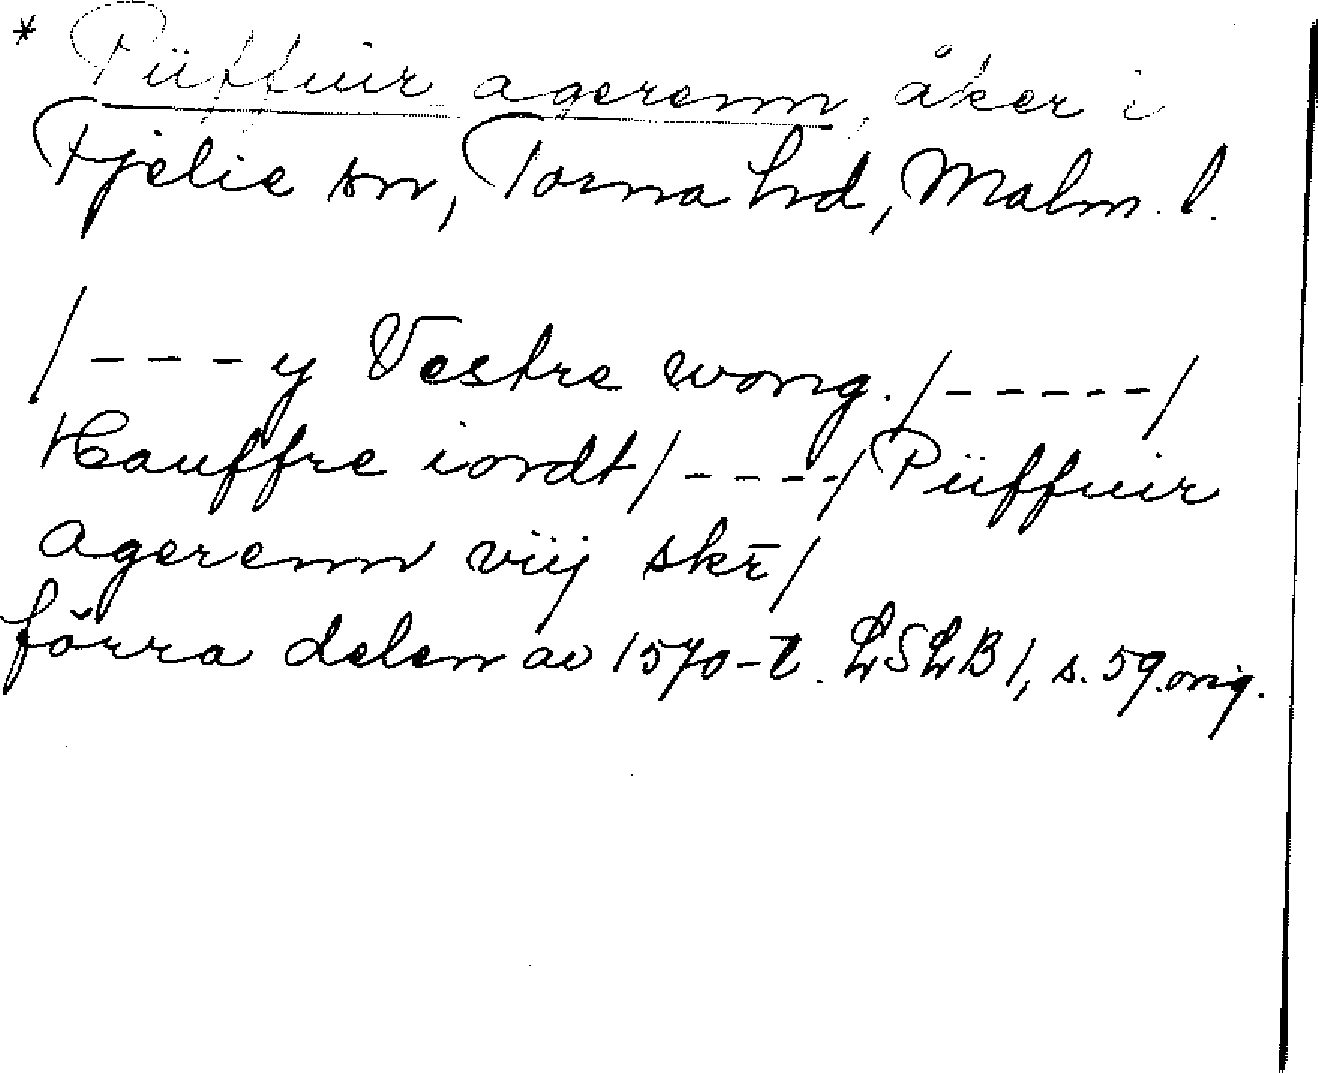 * Püffuir agerenn, åker i
Fjelie sn, Torna hd, Malm. l.
/---y Vestre wong./-----/
Hauffre iordt/----/Püffuir
agerenn viij skē/
förra delen av 1570-t. LSLB 1, s. 59.orig.